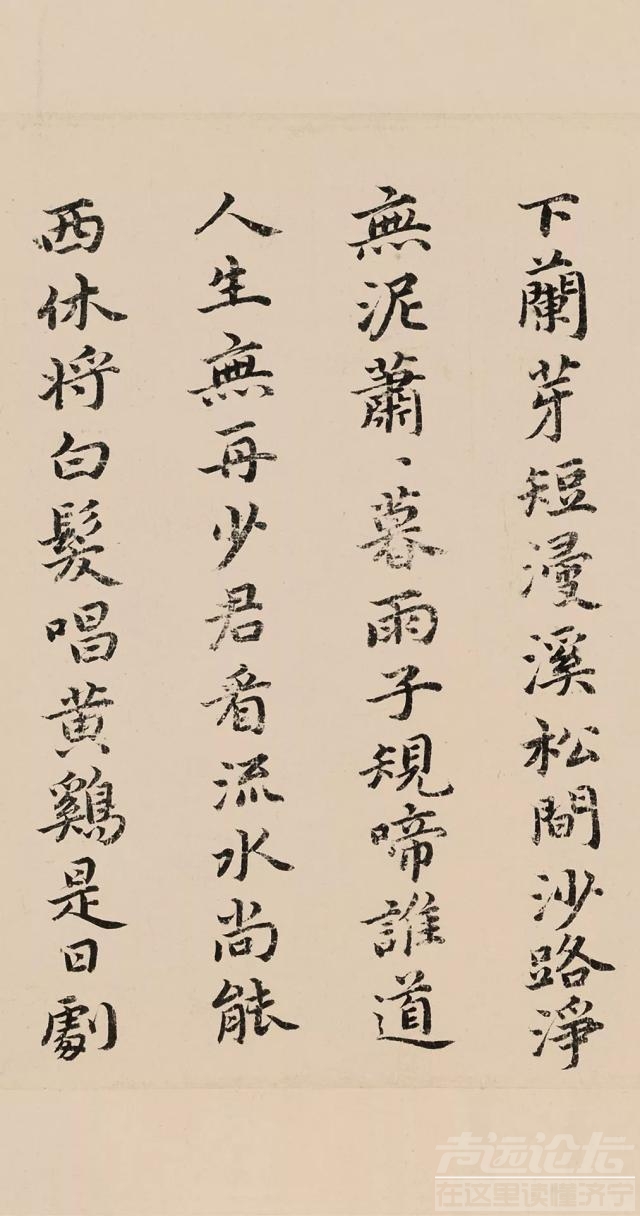 下蘭芽短漫溪松間沙路淨
無泥蕭、暮雨子規啼誰道
人生無再少君看流水尚能
西休将白髮唱黄鷄是日劇
声远论坛
在这里读懂济宁